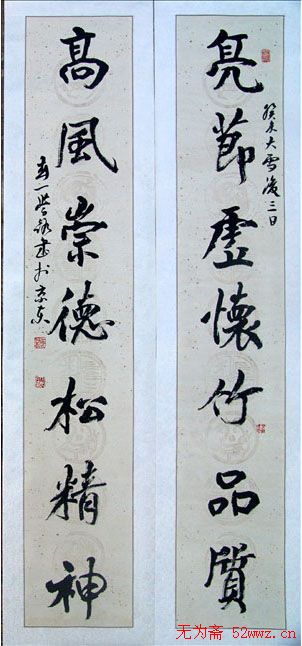 亮節虛懷竹品質
癸未大雪後三日
高風崇德松精神
无为斋 52wwz.cn